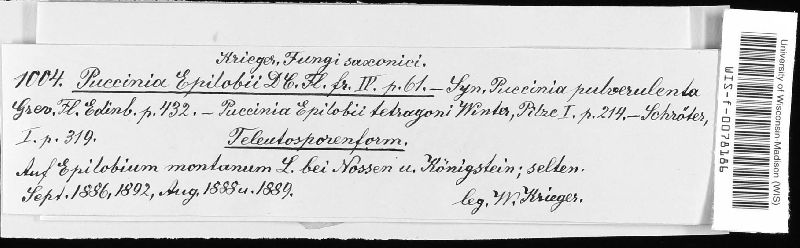 Krieger, Fungi saxonici.
1004. Puccinia Epilobii DC. Fl. fr. VI. p. 61. — Syn. Puccinia pulverulenta
Grev. Fl. Edinb. p. 432. — Puccinia Epilobii tetragoni Winter, Pilze I. p. 214. — Schröter,
I. p. 319.
Teleutosporenform.
Auf Epilobium montanum L. bei Nossen u. Königstein; selten.
Sept. 1886, 1892, Aug. 1888 u. 1889.
leg. W. Krieger.
University of Wisconsin-Madison (WIS)
WIS-f-0078186